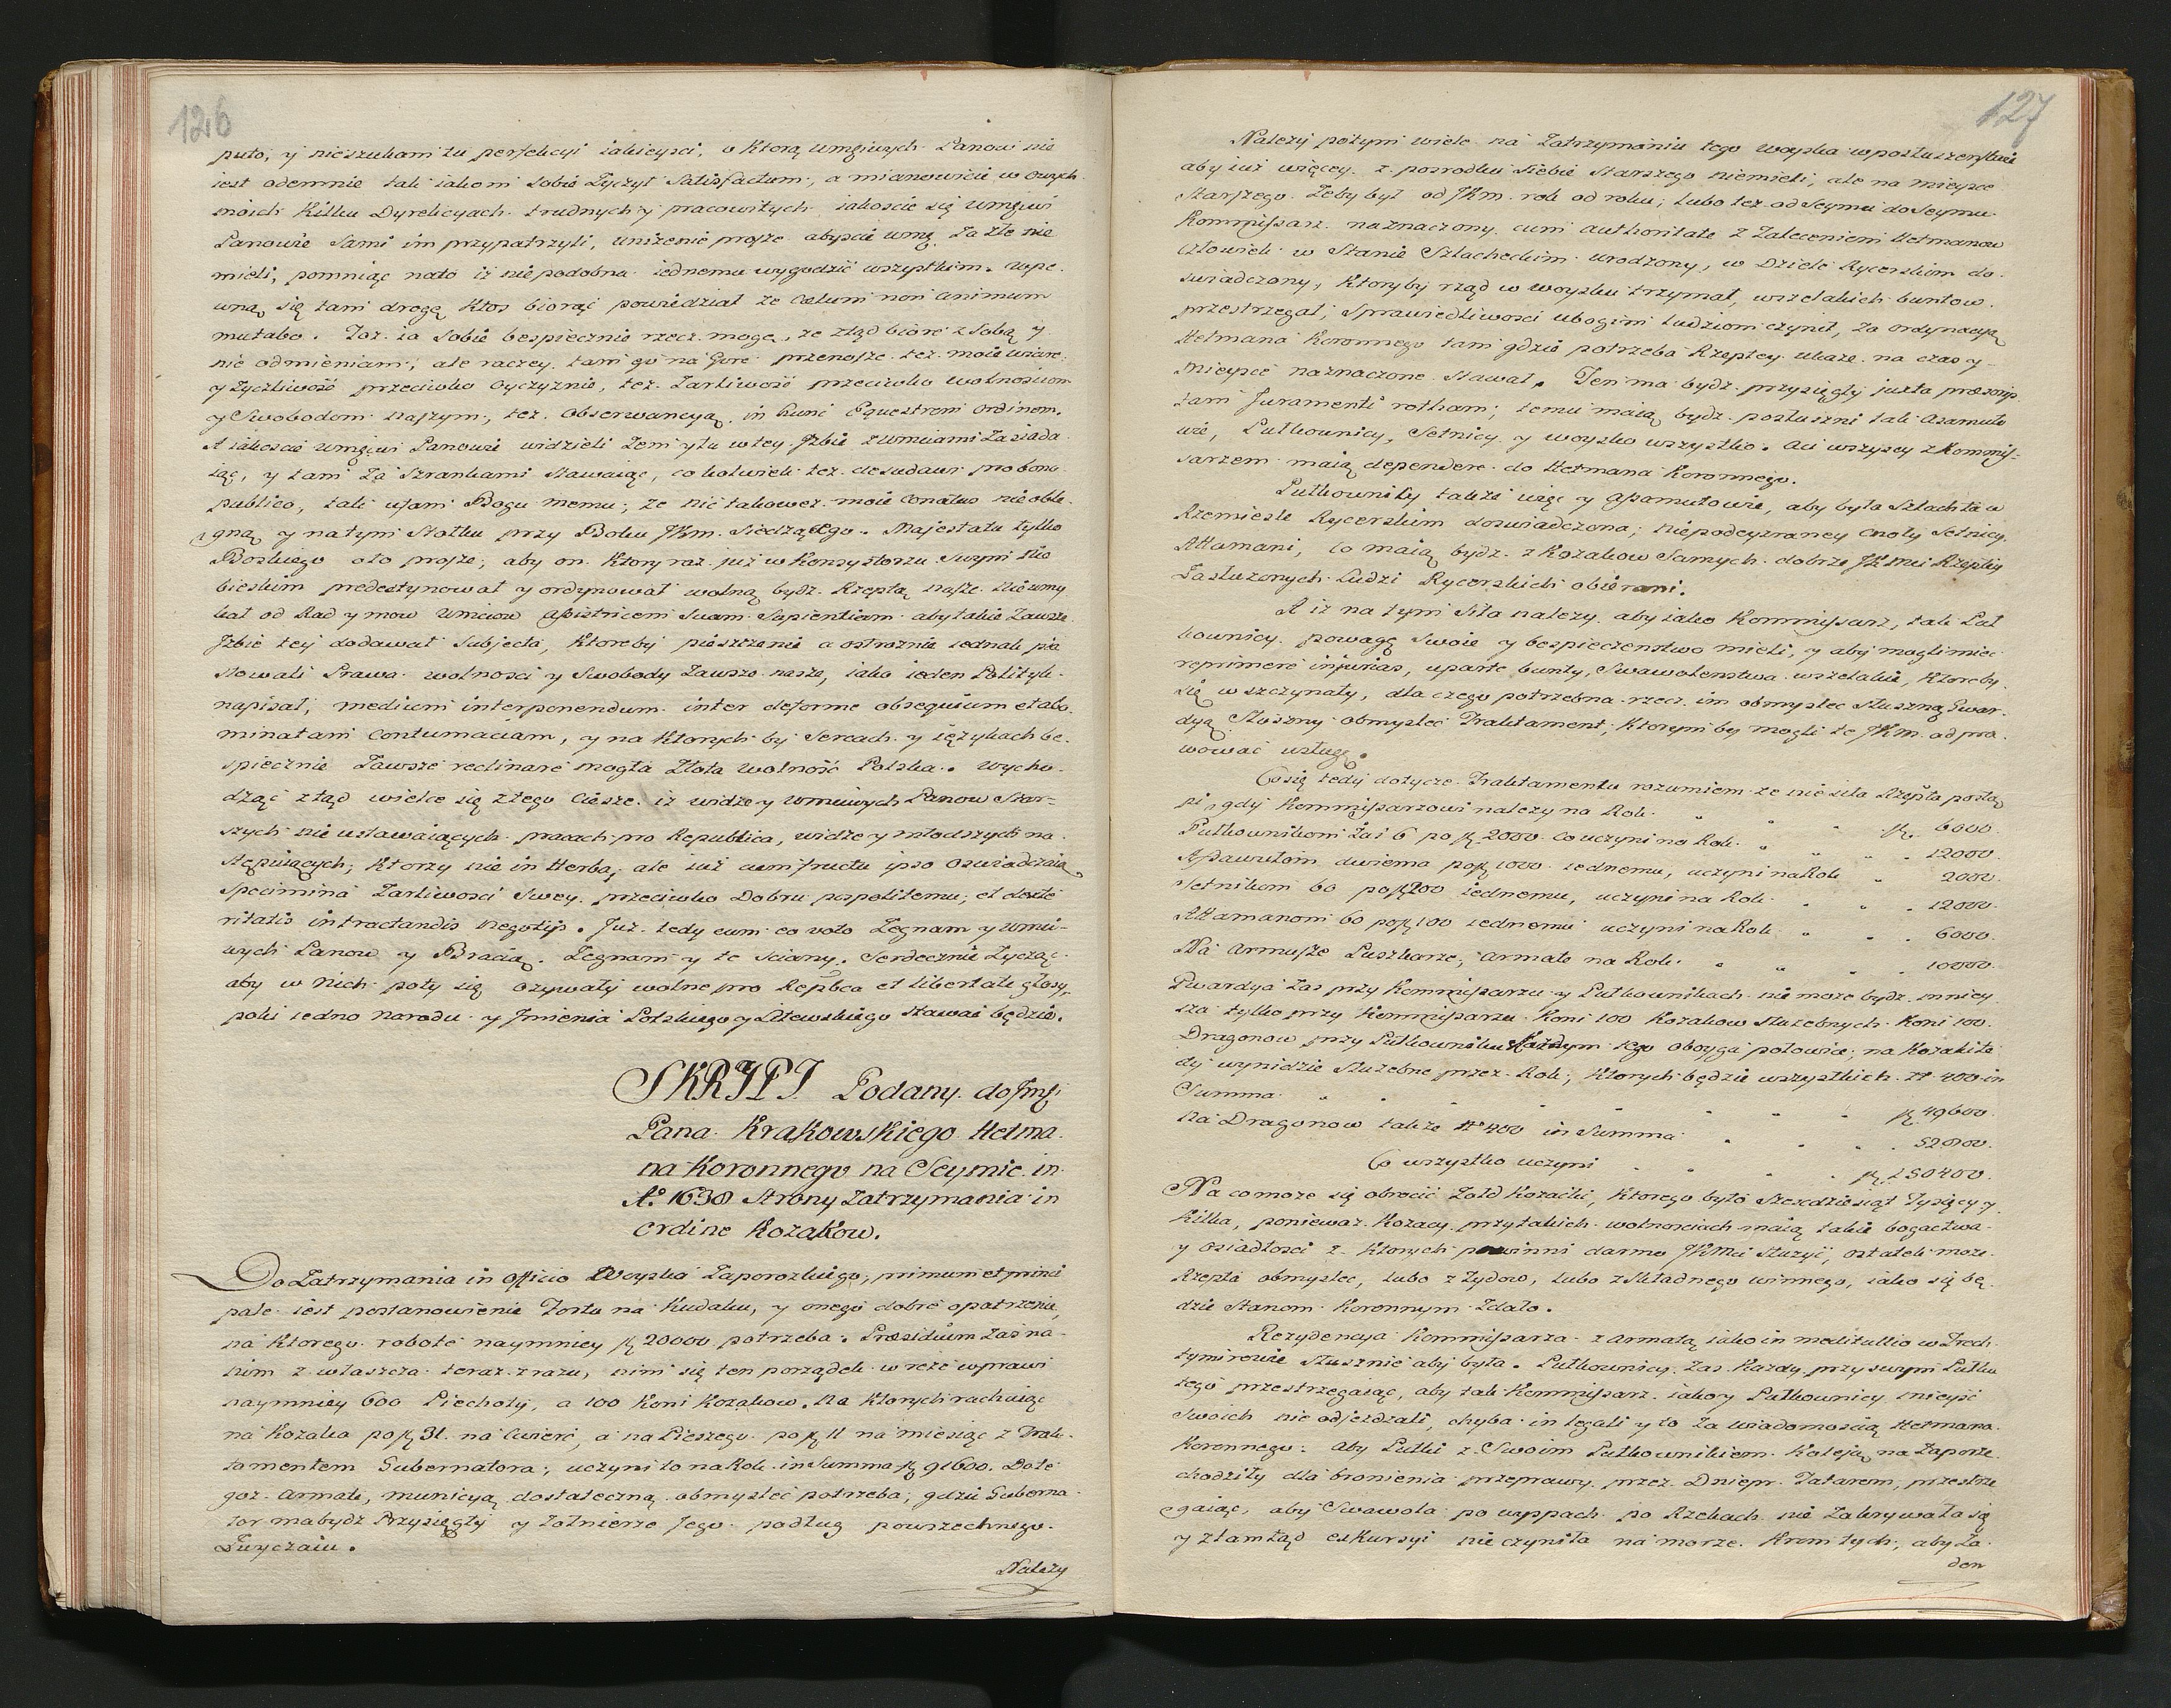 126
puto, y nieszukam tu perfekcyi iakieysci, o Ktorą Umgiwych Panow nie
iest odemnie tak iakom sobie Zyczył Satisfactum, a mianowicie w owych
moich Kilku Dyrekcyach trudnych y pracowitych iakoscie się Umgiwi
Panowie Sami im przypatrzyli, unizenie proszę abyscie Umę za złe nie
mieli, pomniąc nato iż niepodobna iednemu wygodzić wszystkim. Wpe-
wną się tam drogę Ktos biorąc powiedział ze Cœlum non animum
mutabo. Toz ia Sobie bespiecznie rzecz mogę, ze ztąd biorę z Sobą y
nie odmieniam, ale raczey tam go na Gorę przenoszę tez moie wiarę
y Zyczliwość przeciwko oyczyznie, tez Zarliwość przeciwko wolnosciom
y Swobodom Naszym, tez Obserwancyą in hunc Equestrem ordinem.
A iakoscie Umgiwi Panowie widzieli Zem y tu w tey Jzbie z Umciami Zasiada
iąc, y tam Za Szrankami Stawaiąc, cokolwiek tez desudavi pro bono
publico, tak ufam Bogu memu, ze nic takowez moie Conatus nie oble-
gną y natym Stołku przy Boku JKm. Siedzącego. Majestatu tylko
Boskiego oto proszę, aby on Ktory raz już w Konsystorzu Swym Nie
bieskim predestynował y ordynował wolną bydz Rzeptą nasze. Nie umy
kał od Rad y mow Umciow assistricem Suam Sapientiam aby takie Zawsze
Jzbie tey dodawał Subjecta, Ktoreby pieszczenie a ostroznie iednak pia
stowali Prawa wolnosci y Swobody Zawsze nasze, iako ieden Polityk
napisał, medium interponendum inter deforme obsequium et abo-
minatam Contumaciam, y na Ktorych by Sercach y ięzykach be-
spiecznie Zawsze reclinare mogła Złota Wolność Polska. Wycho-
dząc ztąd wielce się ztego Cieszę iż widzę y Umciwych Panow Star-
szych nie ustawaiących pracach pro Republica, widzę y młodszych na
stępuiących; Ktorzy nie in Herba, ale iuż cum fructu ipso oswiadczaią
Specimina Zarliwosci Swey przeciwko Dobru pospolitemu, et dexte
ritatis in tractandis Negotijs. Już tedy cum eo voto Zegnam y Umci-
wych Panow y Bracią. Zegnam y te Sciany. Serdecznie Zycząc
aby w Nich poty się ozywały wolne pro Repbca et libertate głosy,
poki iedno Narodu y Jmienia Polskiego y Litewskiego Stawać będzie.
SKRYPT Podany do Jmśi
Pana Krakowskiego Hetma-
na Koronnego na Seymie in
Ao 1638 Strony Zatrzymania in
Ordine Kozakow.
Do Zatrzymania in Officio Woyska Zaporozkiego, primum et princi
pale iest postanowienie Fortu na Kudaku, y onego dobre opatrzenie,
na Ktorego robotę naymniey fl 20000 potrzeba. Præsidium zaś na-
nim z właszcza teraz zrazu, nim się ten porządek w rezę wprawi
naymniey 600 Piechoty, a 100 Koni Kozakow. Na Ktorych rachuiąc
na Kozaka po fl 31 na Cwierć, a na Pieszego po fl 11 na miesiąc z Trak-
tamentem Gubernatora, uczyni to na Rok in Summa fl 91600. Dote
goz Armatę, municyą dostateczną obmyslić potrzeba, gdzie Guberna-
tor ma bydz Przysięgły y Zołnierze Jego podług powszechnego
Zwyczaiu.
Należy
127
Należy potym wiele na Zatrzymaniu tego woyska w posłuszenstwie
aby iuż więcey z posrodku Siebie Starszego niemieli, ale na mieysce
Starszego Zeby był od JKm. rok od roku, lubo tez od Seymu do Seymu
Kommissarz naznaczony cum authoritate z Zaleceniem Hetmanow
Człowiek w Stanie Szlacheckim urodzony, w Dziele Rycerskim do-
swiadczony, Ktoryby rząd w woysku trzymał, wszelakich buntow
przestrzegał, Sprawiedliwosci ubogim ludziom czynił, za ordynacyą
Hetmana Koronnego tam gdzie potrzeba Rzeptey ukaze na czas y
mieysce naznaczone Stawał. Ten ma bydz przysięgły juxta præscrip
tam Juramenti rotham, temu maią bydz posłuszni tak Asamuło
wie, Pułkownicy, Setnicy y woysko wszystko. Aci wszyscy z Kommis-
sarzem maią dependere do Hetmana Koronnego.
Pułkownicy takze iuz y Assamułowie, aby była Szlachta w
Rzemiesle Rycerskim doswiadczona, niepodeyzraney cnoty Setnicy
Attamani, co maią bydz z Kozakow Samych dobrze JKmci Rzeptey
Zasłuzonych Ludzi Rycerskich obierani.
A iz na tym Siła nalezy aby iako Kommissarz, tak Puł
kownicy powagę Swoie y bespieczenstwo mieli, y aby mogli miec
reprimere injurias, uparte bunty, Swawolenstwa wszelakie, Ktoreby
się wszczynały, dla czego potrzebna rzecz im obmyslec Słuszną Gwar-
dyą Słuszny obmyslić Traktament, Ktorym by mogli te JKm. odpra-
wować usługę.
Co się tedy dotycze Traktamentu rozumiem ze nie siła Rzepta postą
pi, gdy Kommissarzowi nalezy na Rok fl. 6000.
Pułkownikom Zaś 6 po fl 2000 co uczyni na Rok 12000.
Assawułom dwiema po fl 1000 iednemu, uczyni na Rok 2000.
Setnikom 60 po fl 200 iednemu, uczyni na Rok 12000.
Attamanom 60 po fl 100 iednemu uczyni na Rok 6000.
Na Armusze Puszkarze, Armatę na Rok 10000.
Gwardya Zas przy Kommissarzu y Pułkownikach nie moze bydz mniey
sza tylko przy Kommissarzu Koni 100 Kozakow Słuzebnych Koni 100.
Dragonow przy Pułkowniku Kazdym tego oboyga połowica, na Kozaki te
dy wynidzie Słuzebne przez Rok, Ktorych będzie wszystkich No 400 in
Summa fl 49600.
Na Dragonow takze No 400 in Summa 52800.
Co wszystko uczyni fl. 150400.
Na co moze się obrocić Zołd Kozacki, Ktorego było Szescdziesiąt Tysięcy y
Kilka, poniewaz Kozacy przytakich wolnosciach maią takie bogactwa
y osiadłosci z Ktorych powinni darmo JKMci słuzyć, ostatek moze
Rzepta obmyslec, lubo z Zydow, lubo z Składnego winnego, iako się bę-
dzie Stanom Koronnym Zdało.
Rezydencya Kommissarza z Armatą iako in meditullio w Trech
tymirowie słusznie aby była. Pułkownicy Zas Kazdy przy swym Pułku
tego przestrzegaiąc, aby tak Kommissarz iako y Pułkownicy mieysc
Swoich nie odjezdzali, chyba in legali y to Za wiadomoscią Hetmana
Koronnego. Aby Pułki z Swoim Pułkownikiem Koleją na Zaporze
chodziły dla bronienia przeprawy przez Dniepr Tatarom, przestrze
gaiąc, aby Swawola po wyspach po Rzekach nie Zakrywała się
y ztamtąd exkursyi nie czyniła na morze. Krom tych, aby Za-
den